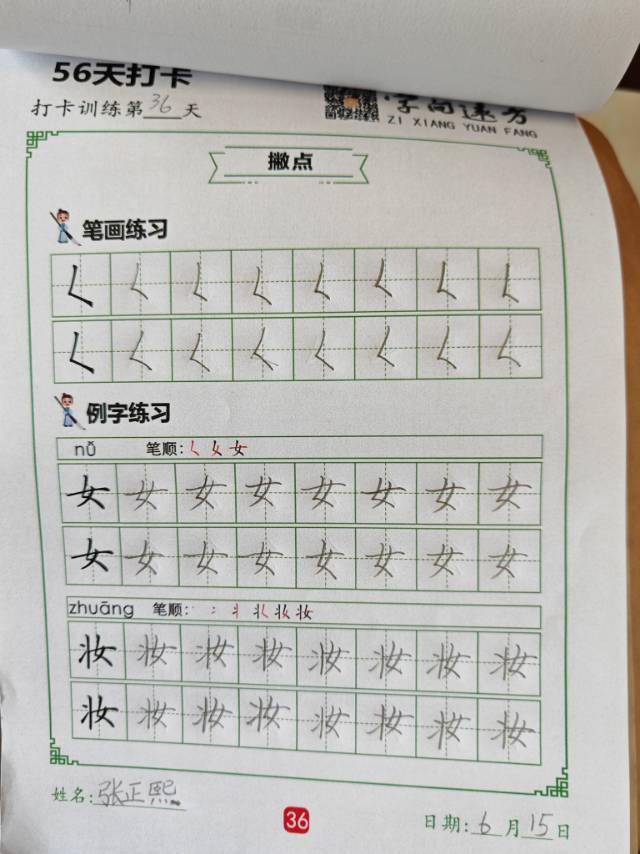 56天打卡
打卡训练第36天
字向速方
ZI XIANG YUAN FANG
撇点
笔画练习
𡿨 𡿨 𡿨 𡿨 𡿨 𡿨 𡿨 𡿨
𡿨 𡿨 𡿨 𡿨 𡿨 𡿨 𡿨 𡿨
例字练习
nǚ 笔顺: 𡿨 女 女
女 女 女 女 女 女 女 女
女 女 女 女 女 女 女 女
zhuāng 笔顺: 丶 冫 丬 妆 妆 妆
妆 妆 妆 妆 妆 妆 妆 妆
妆 妆 妆 妆 妆 妆 妆 妆
姓名:张正熙
36
日期:6月15日